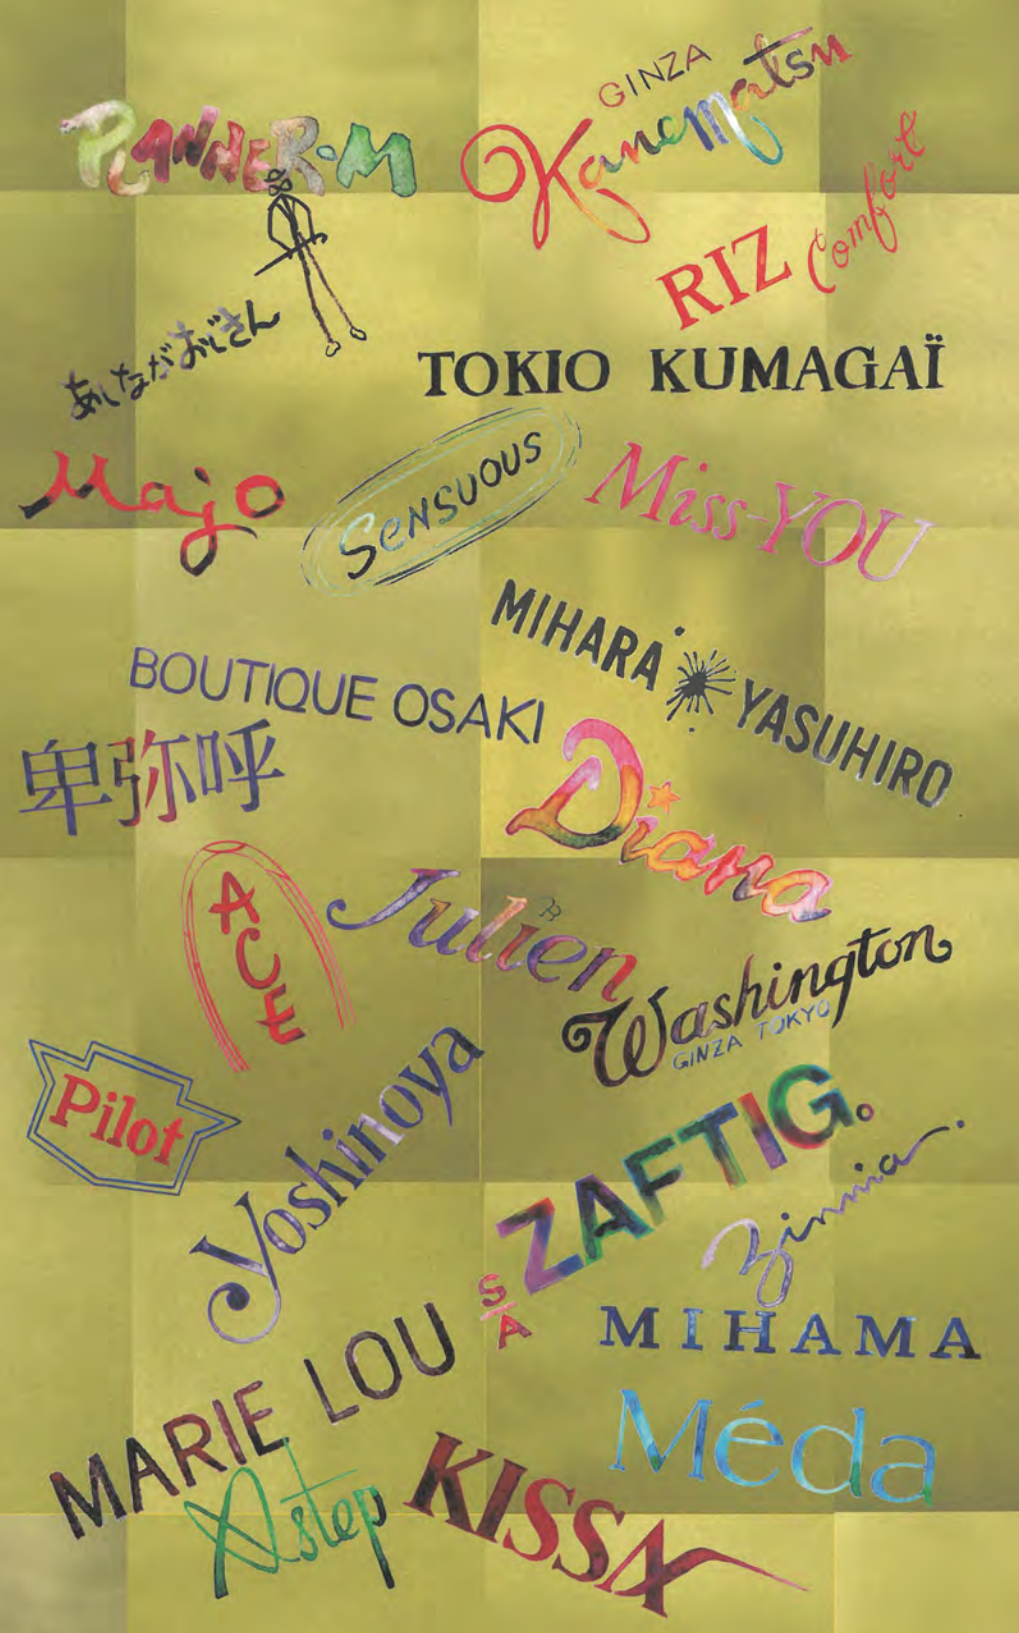 PLANNER-M
GINZA
Kanematsu
RIZ Comfort
あしながおじさん
TOKIO KUMAGAÏ
Majo
SENSUOUS
Miss-YOU
MIHARA YASUHIRO
BOUTIQUE OSAKI
卑弥呼
Diana
ACE
Julien
Washington
GINZA TOKYO
Pilot
Yoshinoya
ZAFTIG.
Zinnia.
S/A
MIHAMA
MARIE LOU
Méda
Astep
KISSA